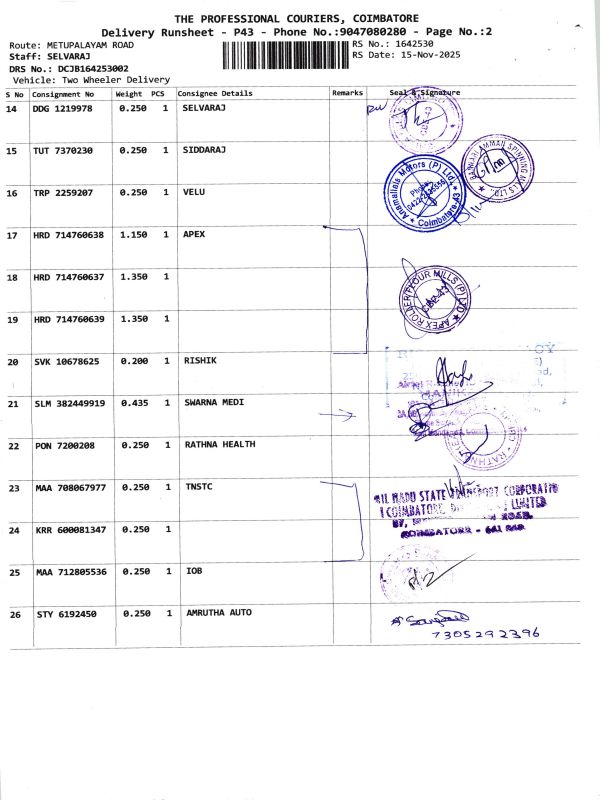 THE PROFESSIONAL COURIERS, COIMBATORE
Delivery Runsheet - P43 - Phone No.:9047080280 - Page No.:2
Route: METUPALAYAM ROAD RS No.: 1642530
Staff: SELVARAJ RS Date: 15-Nov-2025
DRS No.: DCJB164253002
Vehicle: Two Wheeler Delivery
S No Consignment No Weight PCS Consignee Details Remarks Seal & Signature
14 DDG 1219978 0.250 1 SELVARAJ
15 TUT 7370230 0.250 1 SIDDARAJ
BANNARI AMMAN SPINNING MILLS LTD.
Anamallais Motors (P) Ltd.
Coimbatore-43
16 TRP 2259207 0.250 1 VELU
17 HRD 714760638 1.150 1 APEX
18 HRD 714760637 1.350 1
APEX ROLLER FLOUR MILLS (P) LTD
CBE-43
19 HRD 714760639 1.350 1
20 SVK 10678625 0.200 1 RISHIK
21 SLM 382449919 0.435 1 SWARNA MEDI
22 PON 7200208 0.250 1 RATHNA HEALTH
23 MAA 708067977 0.250 1 TNSTC
NADU STATE TRANSPORT CORPORATIO
COIMBATORE LIMITED
24 KRR 600081347 0.250 1
ROAD,
COIMBATORE - 641
25 MAA 712805536 0.250 1 IOB
26 STY 6192450 0.250 1 AMRUTHA AUTO
7305292396